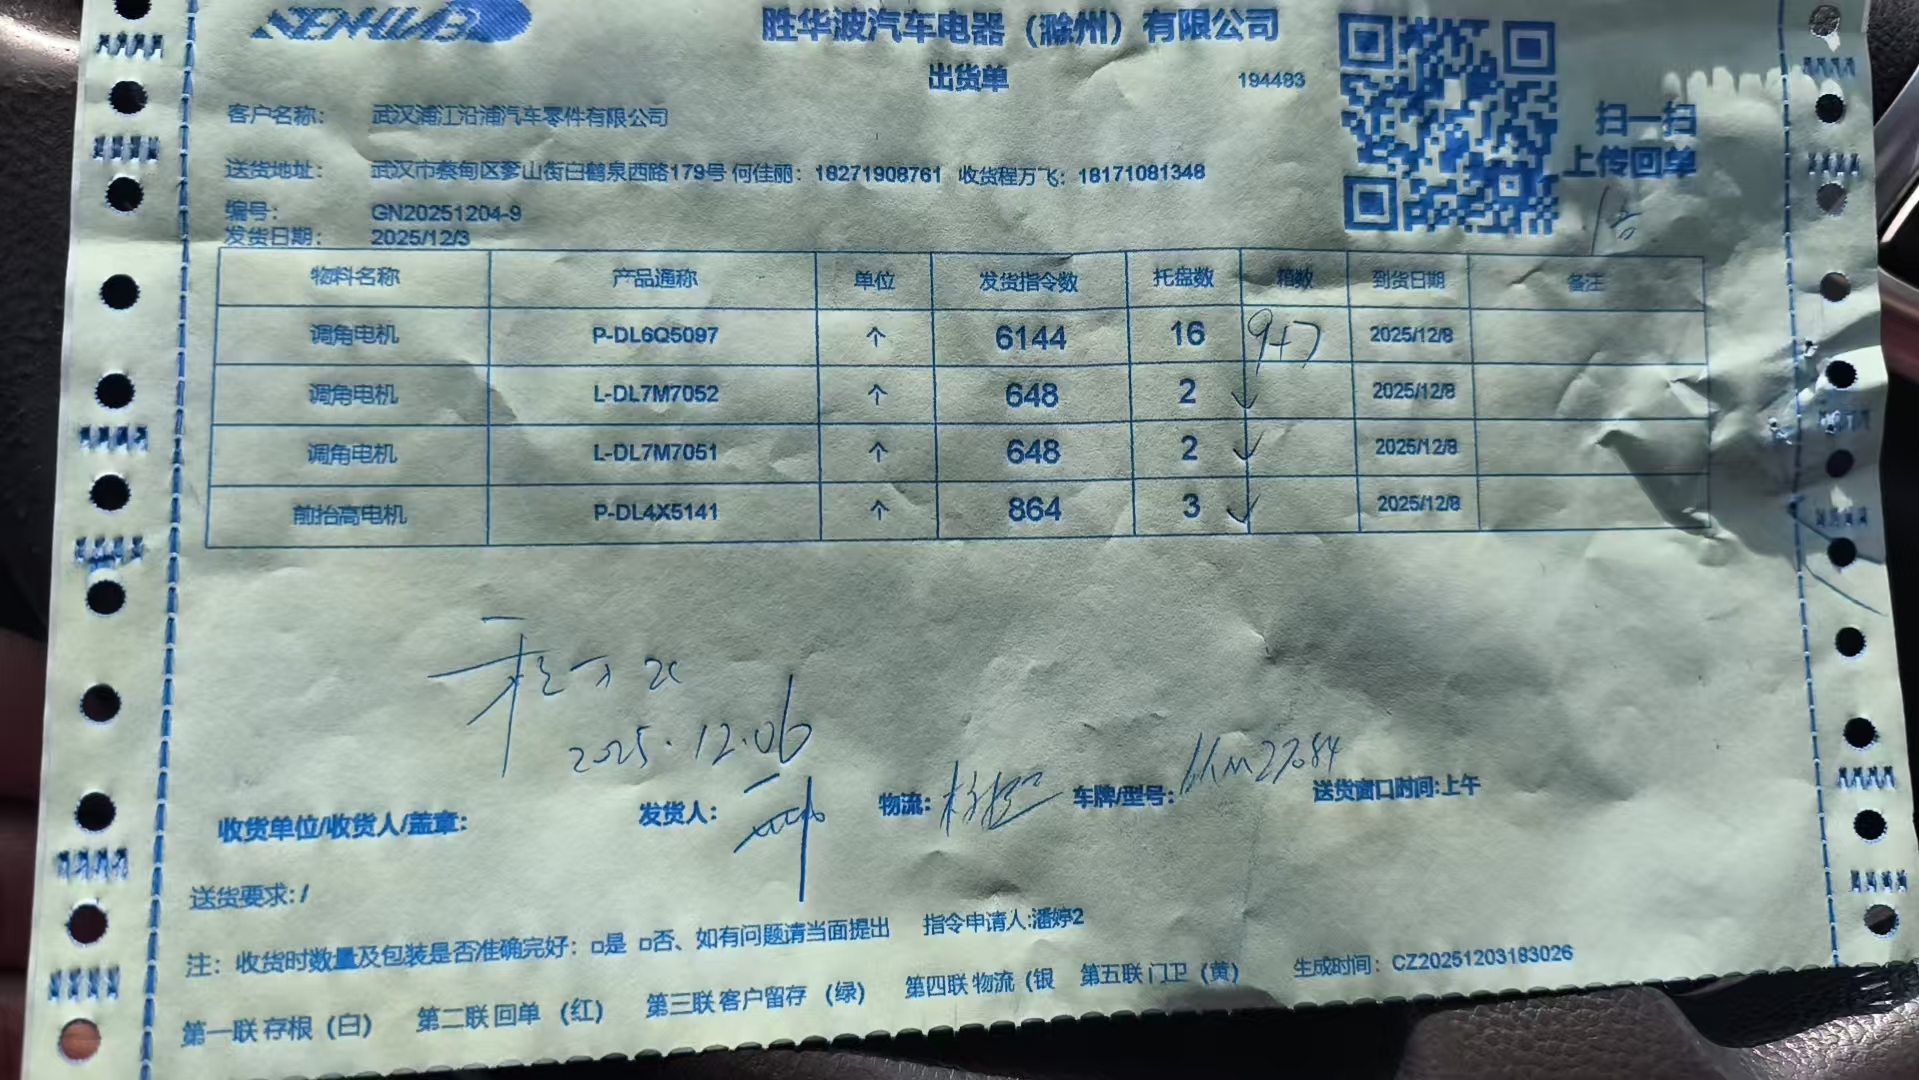 胜华波汽车电器（滁州）有限公司
出货单 194483
扫一扫
上传回单
客户名称： 武汉浦江沿浦汽车零件有限公司
送货地址： 武汉市蔡甸区奓山街白鹤泉西路179号 何佳丽：18271908761 收货程万飞：18171081348
编号： GN20251204-9
发货日期： 2025/12/3
物料名称 产品通称 单位 发货指令数 托盘数 箱数 到货日期 备注
调角电机 P-DL6Q5097 个 6144 16 9+7 2025/12/8
调角电机 L-DL7M7052 个 648 2 ✓ 2025/12/8
调角电机 L-DL7M7051 个 648 2 ✓ 2025/12/8
前抬高电机 P-DL4X5141 个 864 3 ✓ 2025/12/8
程万飞
2025.12.06
收货单位/收货人/盖章： 发货人： 物流： 车牌/型号： 送货窗口时间:上午
送货要求: /
注：收货时数量及包装是否准确完好：□是 □否、如有问题请当面提出 指令申请人:潘婷2
第一联 存根（白） 第二联 回单 （红） 第三联 客户留存 （绿） 第四联 物流（银 第五联 门卫（黄） 生成时间：CZ20251203183026